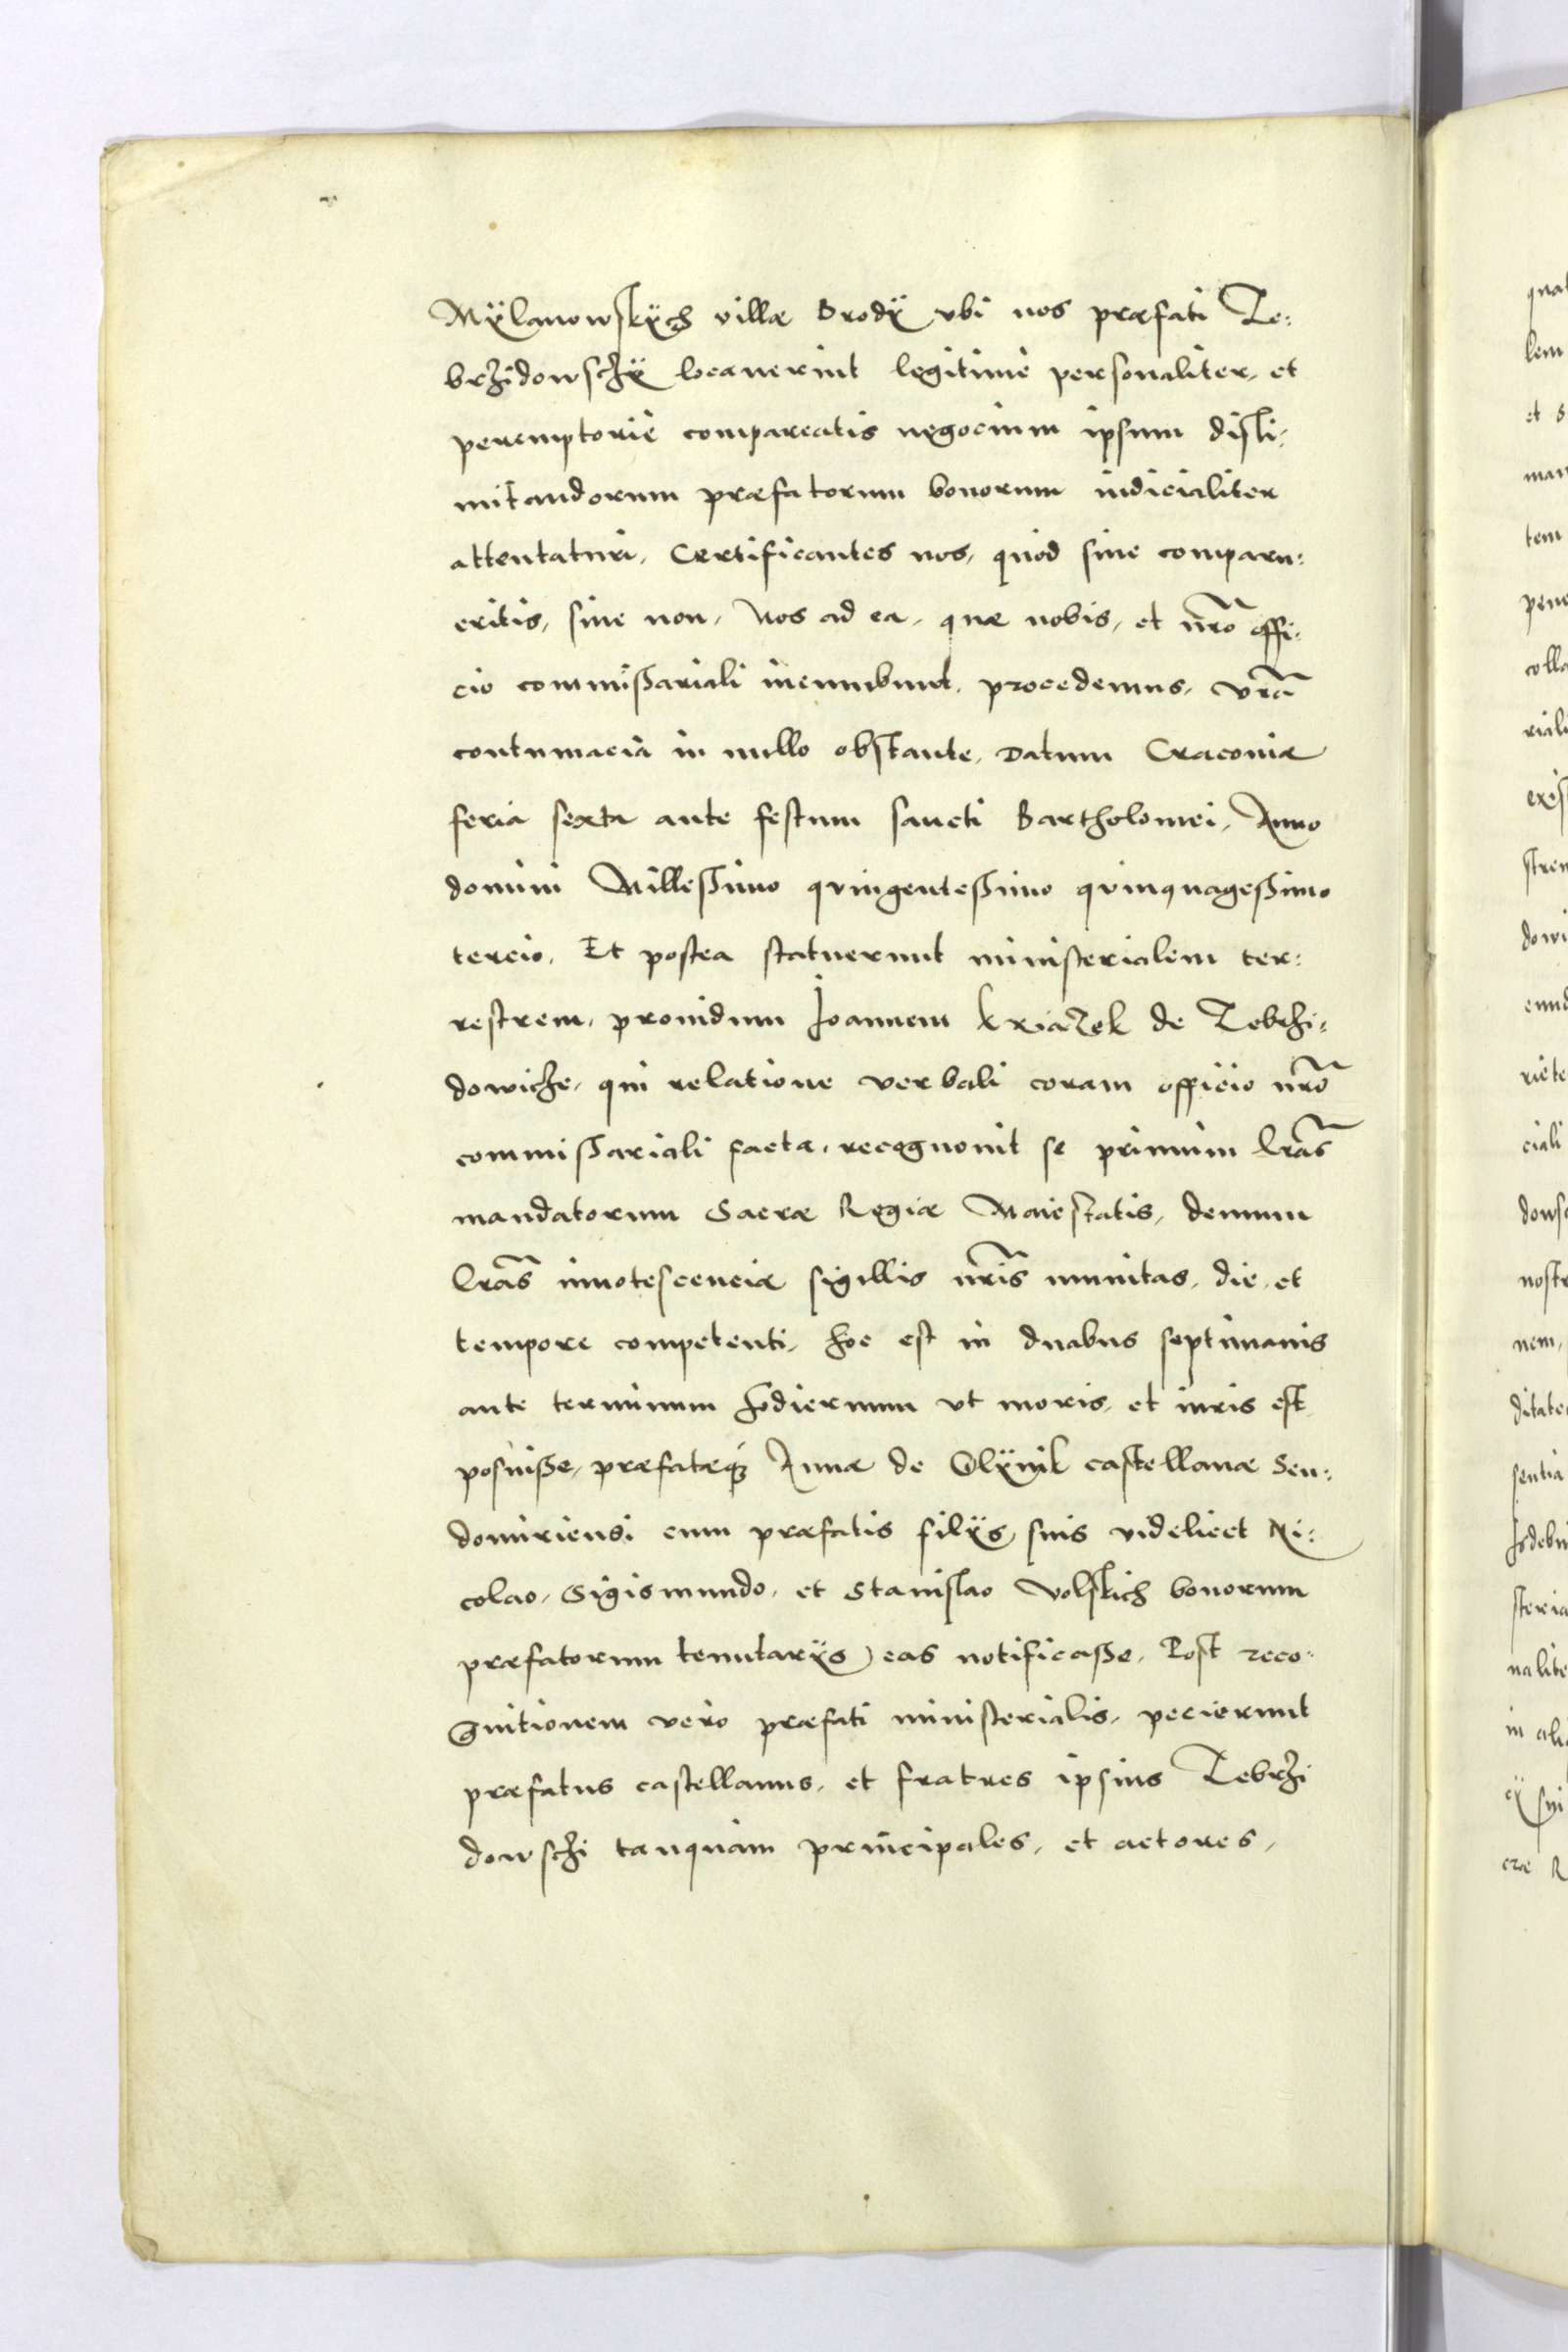 Mÿlanowskÿch villæ Brodÿ vbi nos præfati Ze:
brzidowsczÿ locauerint legitimè personaliter, et
peremptoriè compareatis negocium ipsum disli,
mitandorum præfatorum bonorum iudicialiter
attentaturi, Certificantes vos, quòd siue comparu:
eritis, siue non, Nos ad ea, quæ nobis, et nr̃o offi:
cio commissariali incumbunt, procedemus, vr̃a
contumacia in nullo obstante, Datum Cracoviæ
feria sexta ante festum sancti Bartholomei, Anno
domini Millessimo qvingentessimo qvinquagessimo
tercio, Et postea statuerunt ministerialem ter:
restrem, prouidum Joannem Kxiazek de Zebrzi:
dowicze, qui relatione verbali coram officio nr̃o
commissariali facta, recognouit se primum lr̃as
mandatorum Sacræ Regiæ Maiestatis, demum
lr̃as innotescenciæ sigillis nr̃is munitas, die, et
tempore competenti, hoc est in duabus septimanis
ante terminum hodiernum vt moris, et iuris est
posuisse, præfatæq; Annæ de Olÿnik castellanæ Sen:
domiriensi cum præfatis filÿs suis videlicet Ni:
colao, Sigismundo, et Stanislao Volskich bonorum
præfatorum tenutarÿs) eas notificasse, Post reco:
gnitionem verò præfati ministerialis, pecierunt
præfatus castellanus, et fratres ipsius Zebrzi
dowsczi tanquam principales, et actores,